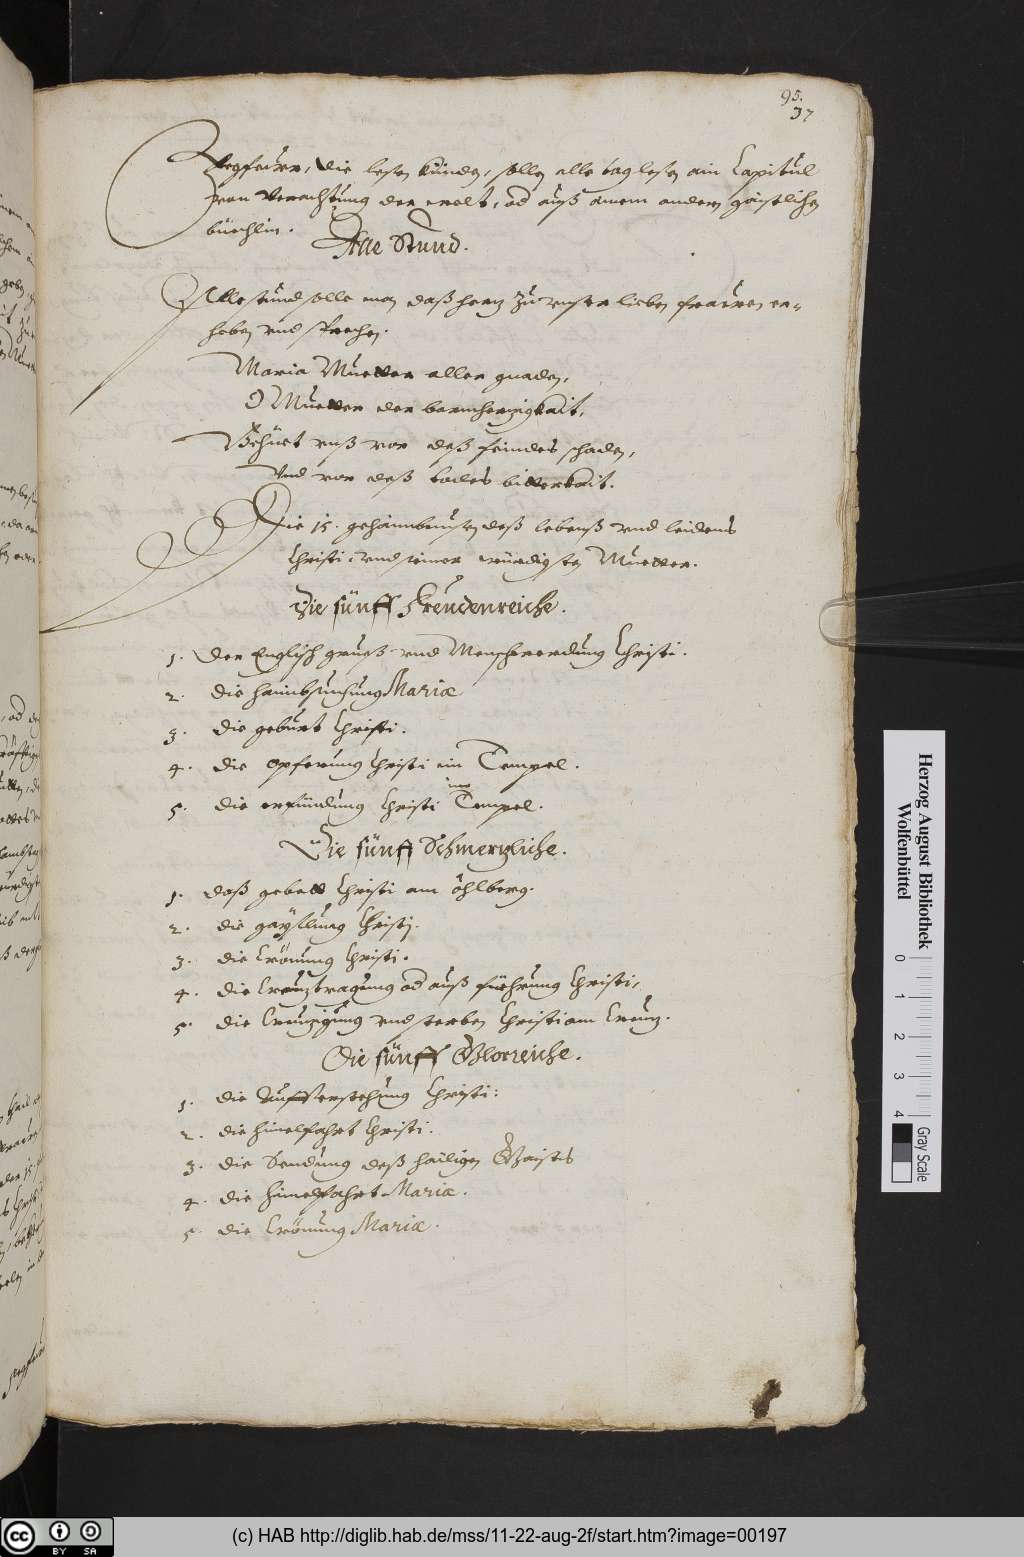 95.
37
Fegfeüer, die lesen künden, sollen alle tag lesen ain Capitul
von Verachtung der welt, od auß ainem andern gaistlichen
büechlin.
Alle Stund.
Alle stund solle man daß hertz zu vnser lieben frawen er=
heben vnd sprechen.
Maria Muetter aller gnaden,
O Muetter der barmhertzigkait,
Behüet vnß vor deß feindes schaden,
Vnd vor deß todes bitterkait.
Die 15. gehaimbnusen deß lebenß vnd leidens
Christi, vnd seiner würdigsten Muetter.
Die fünff freüdenreiche.
1. Der Englisch gruß vnd Menschwerdung Christi.
2. die haimbsuchung Mariæ
3. die geburt Christi.
4. die opferung Christi im Tempel.
5. die erfindung Christi im Tempel.
Die fünff Schmertzliche.
1. daß gebett Christi am öhlberg.
2. die gayßlung Christj.
3. die Crönung Christi.
4. die Creutztragung od auß füehrung Christi,
5. die Creutzigung vnd sterben Christi am Creutz.
Die fünff Glorreiche.
1. die Aufferstehung Christi:
2. die himelfahrt Christi.
3. die Sendung deß hailigen Gaistes
4. die himelfahrt Mariæ.
5. die Crönung Mariæ.
Herzog August Bibliothek
Wolfenbüttel
0 1 2 3 4
Gray Scale
cc BY SA
(c) HAB http://diglib.hab.de/mss/11-22-aug-2f/start.htm?image=00197